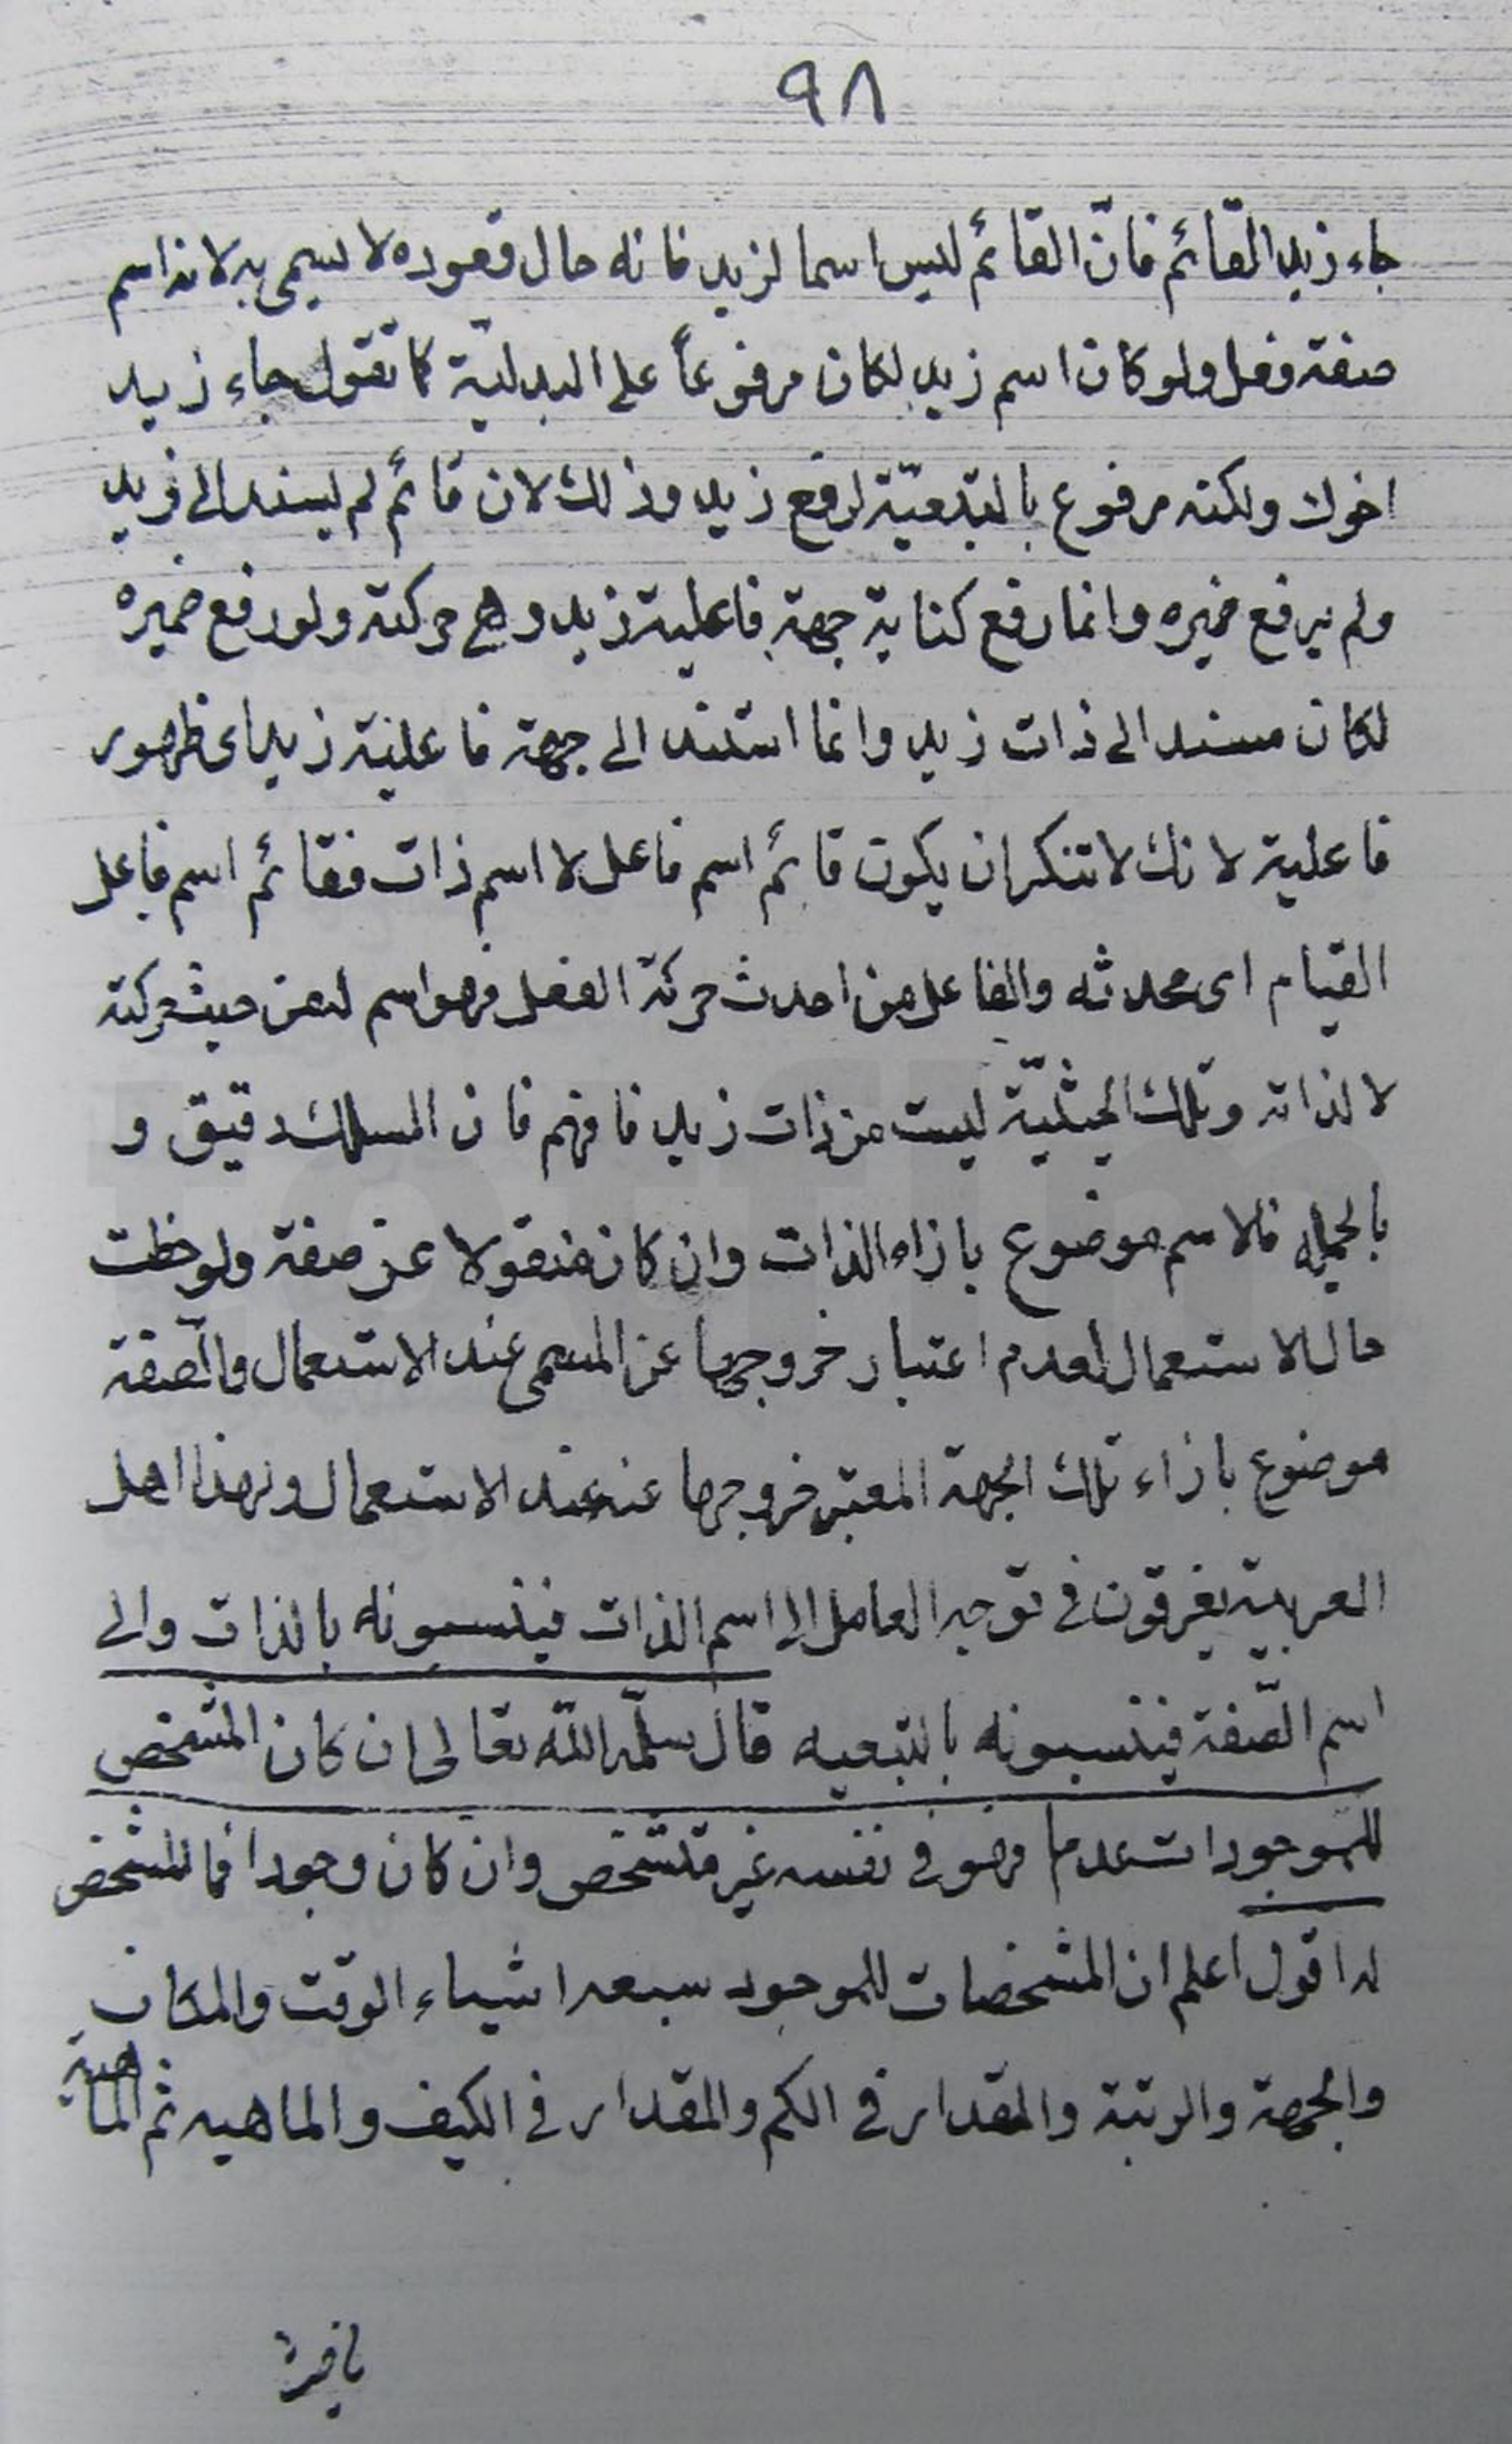 ٩٨
جاء زيد القائم فانّ القائم ليس اسما لزيد فانه حال قعوده لا يسمى به لانه اسم
صفة فعل ولو كان اسم زيد لكان مرفوعاً على البدليّة كما تقول جاء زيد
اخوك ولكنه مرفوع بالتبعيّة لرفع زيد وذلك لان قائم لم يسند الى زيد
ولم يرفع ضميره وانما رفع كناية جهة فاعلية زيد وهي حركته ولو رفع ضميره
لكان مسندا الى ذات زيد وانما استند الى جهة فاعلية زيد اى ظهور
فاعلية لانك لا تنكر ان يكون قائم اسم فاعل لا اسم ذات فقائم اسم فاعل
القيام اى محدثه والفاعل من احدث حركة الفعل فهو اسم لمن حيث حركته
لا لذاته وتلك الحيثيّة ليست من ذات زيد فافهم فان المسلك دقيق و
بالجمله فالاسم موضوع بازاء الذات وان كان منقولا عن صفة ولوحظت
حال الاستعمال لعدم اعتبار خروجها عن المسمى عند الاستعمال والصّفة
موضوع بازاء تلك الجهة المعتبر خروجها عنه عند الاستعمال ولهذا اهل
العربية يفرقون في توجه العامل الى اسم الذات فينسبونه بالذات والى
اسم الصّفة فينسبونه بالتبعيه قال سلّمه اللّه تعالى ان كان المشخص
للموجودات عدما فهو في نفسه غير متشخص وان كان وجودا فما المشخص
له اقول اعلم ان المشخصات للموجود سبعه اشياء الوقت والمكان
والجهة والرتبة والمقدار في الكم والمقدار في الكيف والماهيه ثم الماهية